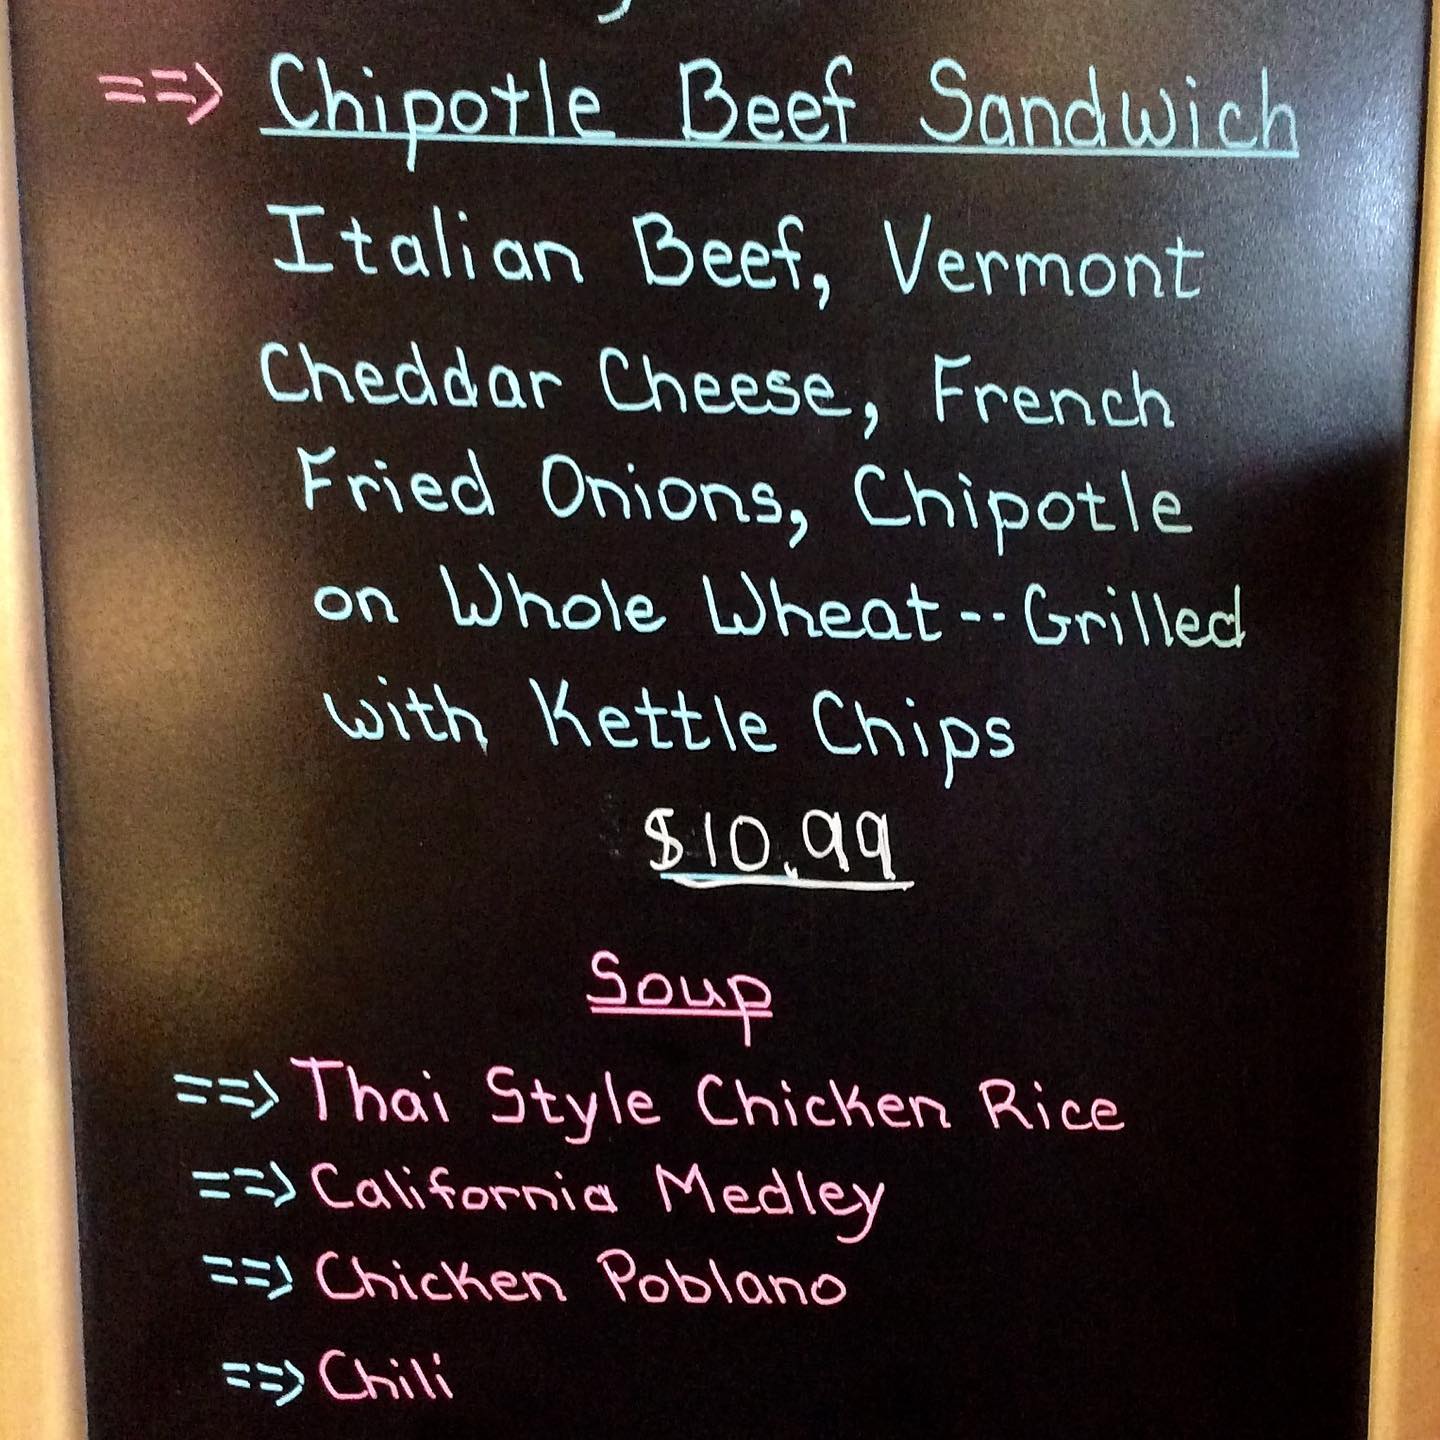 ==> Chipotle Beef Sandwich
Italian Beef, Vermont
Cheddar Cheese, French
Fried Onions, Chipotle
on Whole Wheat -- Grilled
with Kettle Chips
$10.99
Soup
==> Thai Style Chicken Rice
==> California Medley
==> Chicken Poblano
==> Chili